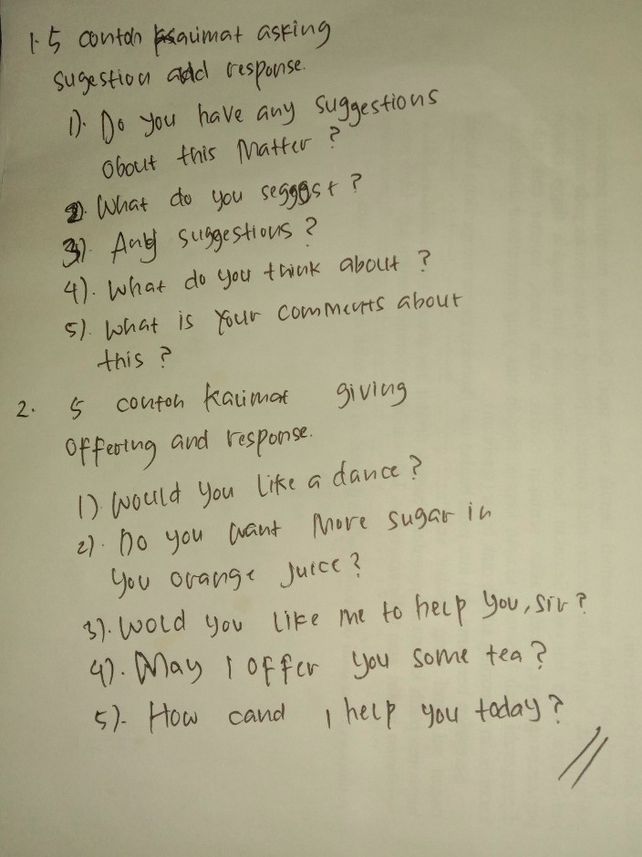 1. 5 contoh kalimat asking
sugestion add response.
1). Do you have any suggestions
about this Matter ?
2). What do you seggest ?
3). Any suggestions ?
4). What do you think about ?
5). What is Your comments about
this ?
2. 5 contoh kalimat giving
offering and response.
1) Would You like a dance ?
2). Do you want More sugar in
You orange Juice ?
3). Wold you like me to help You, sir ?
4). May I offer you some tea ?
5). How cand I help you today ?